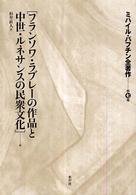 ミハイル・バフチン全著作
第7巻
[フランソワ・ラブレーの作品と
中世・ルネサンスの民衆文化]
杉里直人=訳
水声社